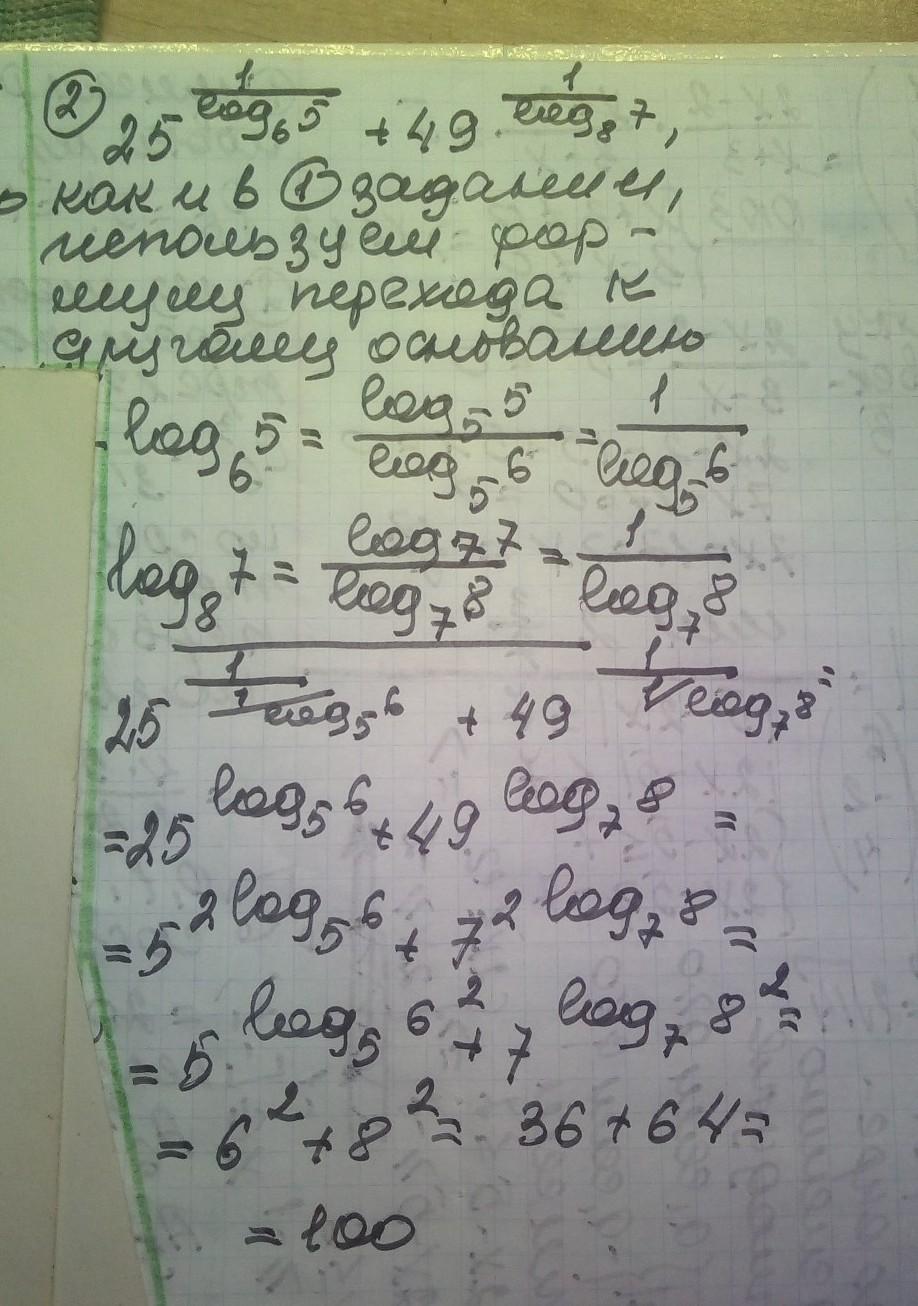 ② 25^(1/log₆5) + 49^(1/log₈7),
как и в ① задании,
используем фор-
мулу перехода к
другому основанию
log₆5 = log₅5/log₅6 = 1/log₅6
log₈7 = log₇7/log₇8 = 1/log₇8
25^(1/(1/log₅6)) + 49^(1/(1/log₇8)) =
= 25^(log₅6) + 49^(log₇8) =
= 5^(2log₅6) + 7^(2log₇8) =
= 5^(log₅6²) + 7^(log₇8²) =
= 6² + 8² = 36 + 64 =
= 100